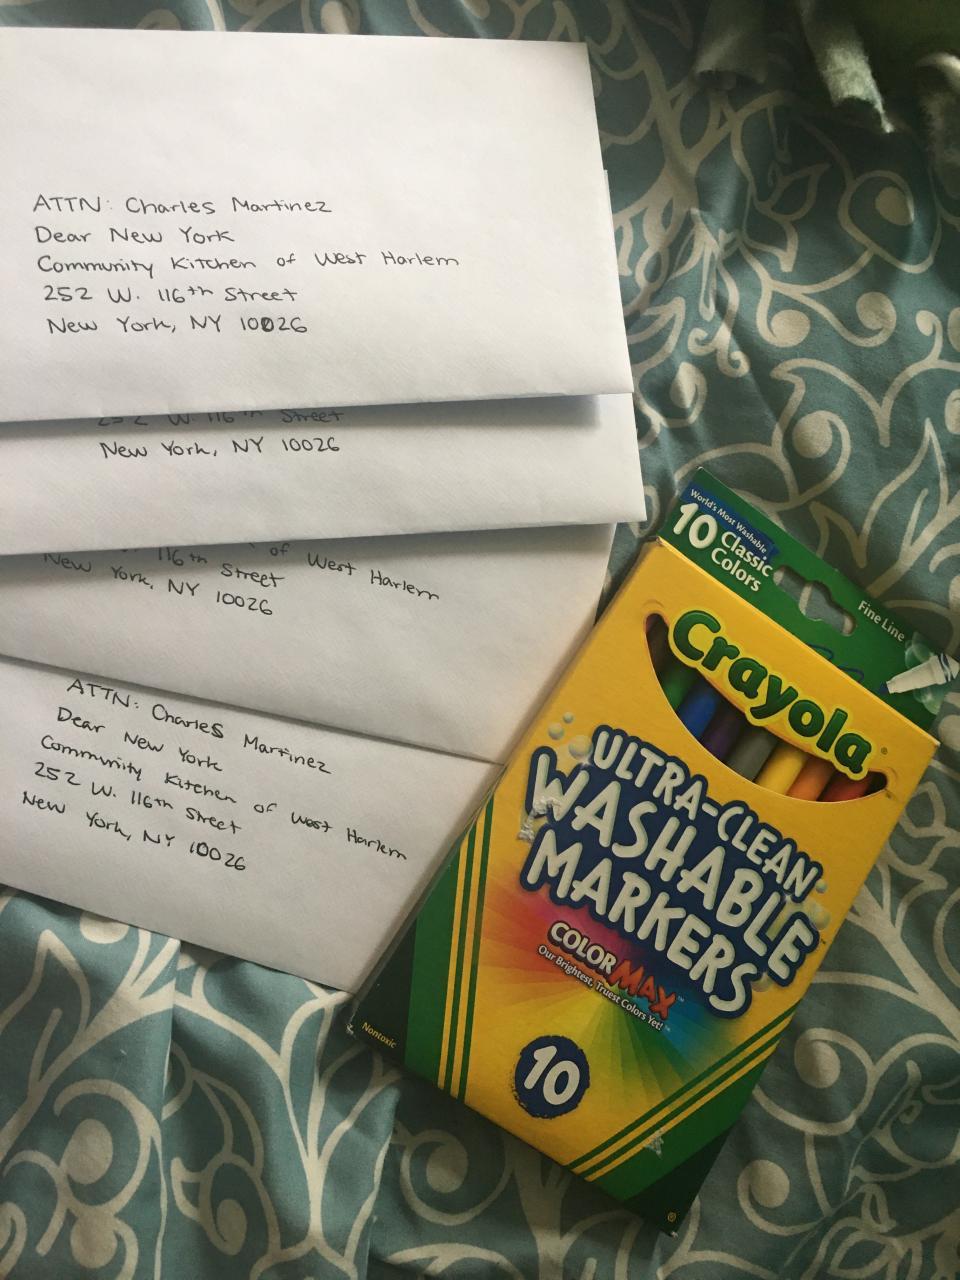 ATTN: Charles Martinez
Dear New York
Community Kitchen of West Harlem
252 W. 116th Street
New York, NY 10026
252 W. 116th Street
New York, NY 10026
of West Harlem
116th Street
New York, NY 10026
ATTN: Charles Martinez
Dear New York
Community Kitchen of West Harlem
252 W. 116th Street
New York, NY 10026
World's Most Washable
10 Classic
Colors
Fine Line
Crayola
ULTRA-CLEAN
WASHABLE
MARKERS
COLORMAX™
Our Brightest, Truest Colors Yet!
Nontoxic
10